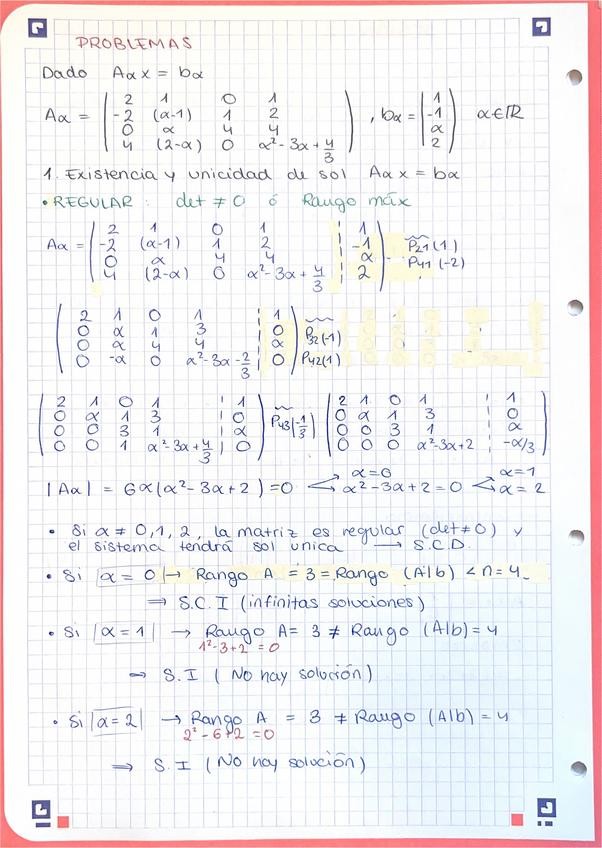 PROBLEMAS
Dado Aα x = bα
Aα = ( 2 1 0 1 ; -2 (α-1) 1 2 ; 0 α 4 4 ; 4 (2-α) 0 α²-3α+4/3 ) , bα = ( 1 ; -1 ; α ; 2 ) α∈ℝ
1. Existencia y unicidad de sol Aα x = bα
• REGULAR: det ≠ 0 ó Rango máx
Aα = ( 2 1 0 1 | 1 ; -2 (α-1) 1 2 | -1 ; 0 α 4 4 | α ; 4 (2-α) 0 α²-3α+4/3 | 2 ) P21(1) P41(-2)
( 2 1 0 1 | 1 ; 0 α 1 3 | 0 ; 0 α 4 4 | α ; 0 -α 0 α²-3α-2/3 | 0 ) P32(-1) P42(1)
( 2 1 0 1 | 1 ; 0 α 1 3 | 0 ; 0 0 3 1 | α ; 0 0 1 α²-3α+4/3 | 0 ) P43(-1/3) ( 2 1 0 1 | 1 ; 0 α 1 3 | 0 ; 0 0 3 1 | α ; 0 0 0 α²-3α+2 | -α/3 )
|Aα| = 6α(α²-3α+2) = 0 < α=0 ; α²-3α+2=0 < α=1 ; α=2
• Si α ≠ 0, 1, 2, la matriz es regular (det≠0) y
el sistema tendrá sol unica → S.C.D.
• Si α = 0 → Rango A = 3 = Rango (A|b) < n=4.
⇒ S.C.I (infinitas soluciones)
• Si α = 1 → Rango A = 3 ≠ Rango (A|b) = 4
1²-3+2 = 0
⇒ S.I ( No hay solución)
• Si α = 2 → Rango A = 3 ≠ Rango (A|b) = 4
2²-6+2 = 0
⇒ S.I (No hay solución)